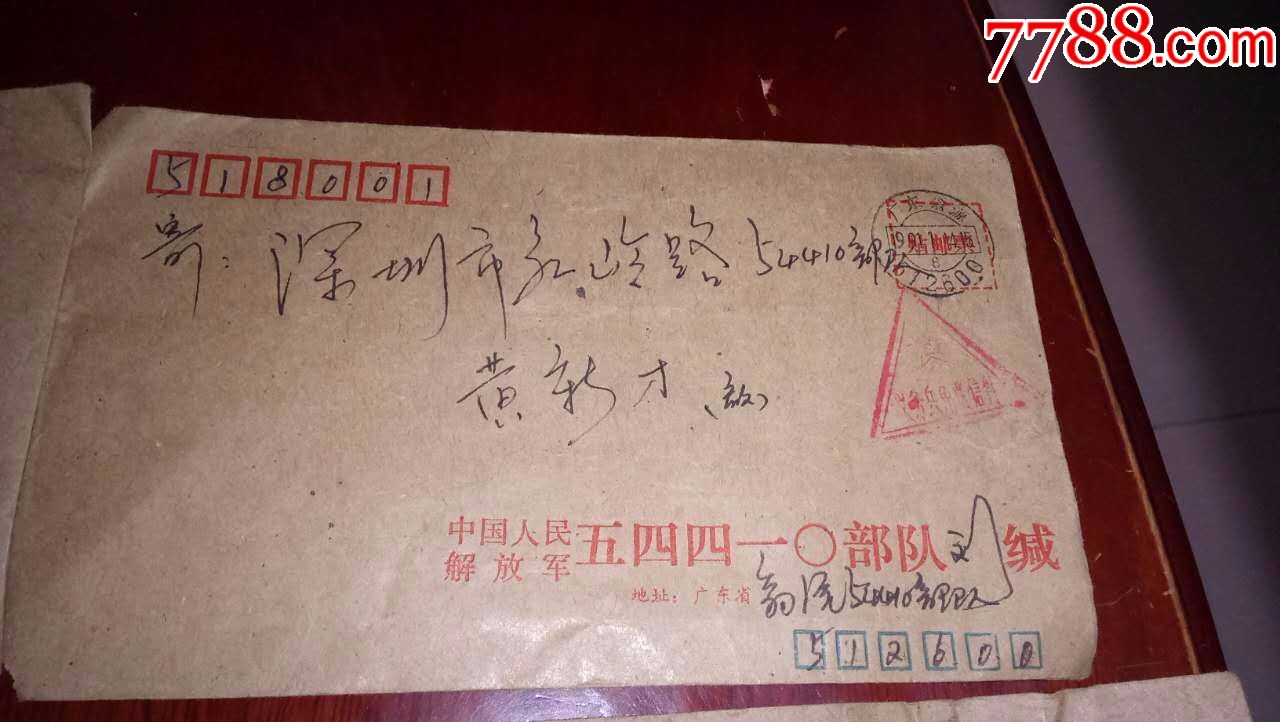 7788.com
518001
寄：深圳市红岭路54410部队
贴邮票
512600
黄新才（收）
义务兵免费信件
中国人民
解放军
五四四一〇部队刘缄
地址：广东省翁源54410部队
512600